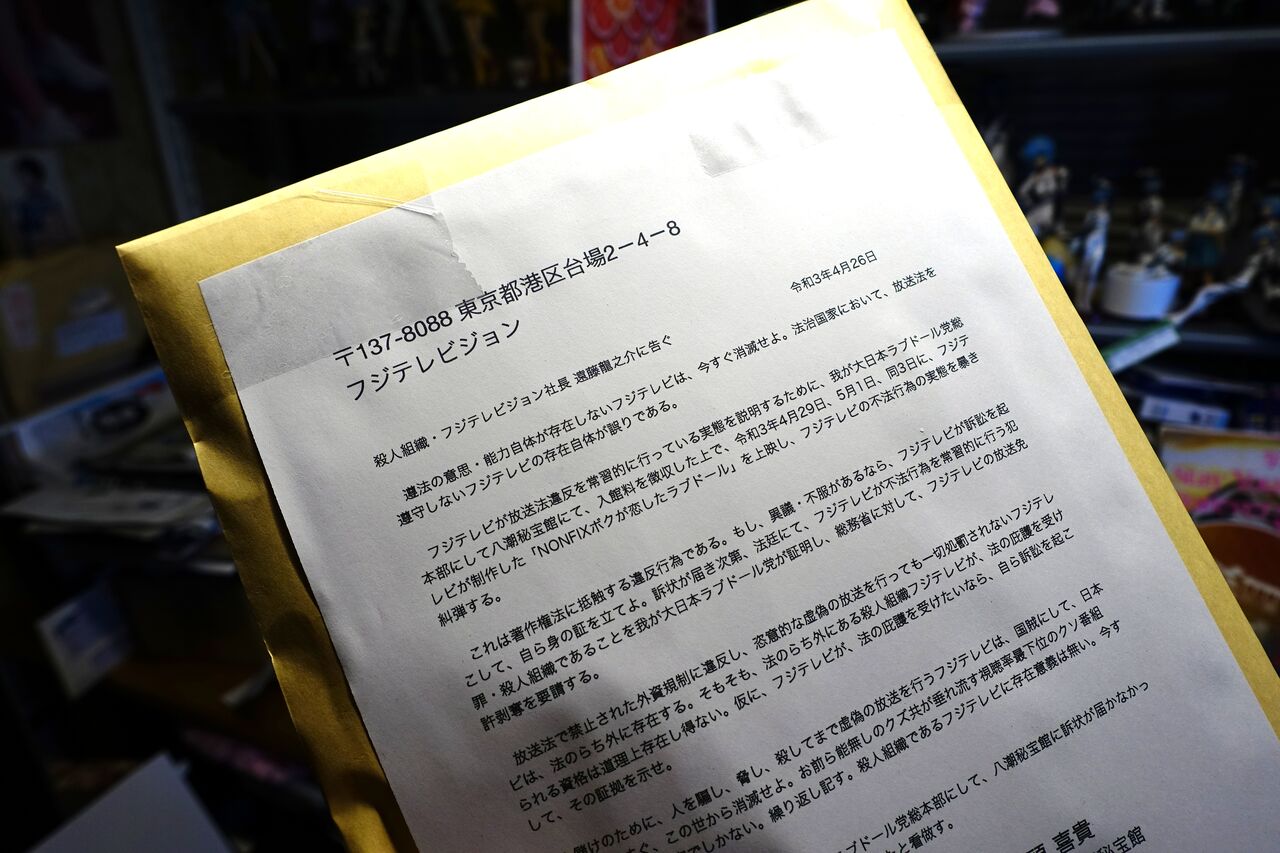 〒137-8088 東京都港区台場2－4－8
フジテレビジョン
令和3年4月26日
殺人組織・フジテレビジョン社長 遠藤龍之介に告ぐ
遵法の意思・能力自体が存在しないフジテレビは、今すぐ消滅せよ。法治国家において、放送法を
遵守しないフジテレビの存在自体が誤りである。
フジテレビが放送法違反を常習的に行っている実態を説明するために、我が大日本ラブドール党総
本部にして八潮秘宝館にて、入館料を徴収した上で、令和3年4月29日、5月1日、同3日に、フジテ
レビが制作した「NONFIXボクが恋したラブドール」を上映し、フジテレビの不法行為の実態を暴き
糾弾する。
これは著作権法に抵触する違反行為である。もし、異議・不服があるなら、フジテレビが訴訟を起
こして、自ら身の証を立てよ。訴状が届き次第、法廷にて、フジテレビが不法行為を常習的に行う犯
罪・殺人組織であることを我が大日本ラブドール党が証明し、総務省に対して、フジテレビの放送免
許剥奪を要請する。
放送法で禁止された外資規制に違反し、恣意的な虚偽の放送を行っても一切処罰されないフジテレ
ビは、法のらち外に存在する。そもそも、法のらち外にある殺人組織フジテレビが、法の庇護を受け
られる資格は道理上存在し得ない。仮に、フジテレビが、法の庇護を受けたいなら、自ら訴訟を起こ
して、その証拠を示せ。
儲けのために、人を騙し、脅し、殺してまで虚偽の放送を行うフジテレビは、国賊にして、日本
すぐ、この世から消滅せよ。お前ら能無しのクズ共が垂れ流す視聴率最下位のクソ番組
でしかない。繰り返し記す。殺人組織であるフジテレビに存在意義は無い。今す
ラブドール党総本部にして、八潮秘宝館に訴状が届かなかっ
たと看做す。
喜貴
秘宝館